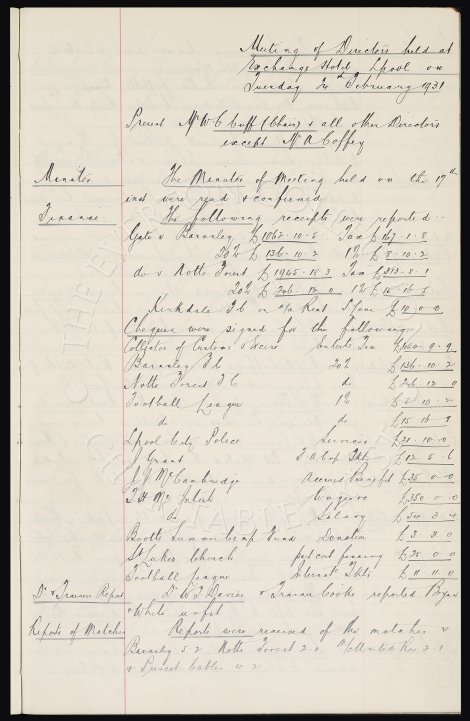 Meeting of Directors held at
Exchange Hotel Lpool on
Tuesday 24th February 1931
Present Mr W C Cuff (Chair) & all other Directors
except Mr A Coffey
Minutes The Minutes of Meeting held on the 17th
inst were read & confirmed.
Finance The following receipts were reported:-
Gate v Barnsley £1062.10.5 Tax £167.1.8
20% £136.10.2 1% £8.10.2
do v Notts Forest £1945.18.3 Tax £313.8.1
20% £246.12.0 1% £15.16.8
Kirkdale F C a/c Rent £10.0.0
Cheques were signed for the following:
Collector of Customs & Excise Ents Tax £480.9.9
Barnsley F C 20% £136.10.2
Notts Forest F C do £246.12.0
Football League 1% £8.10.2
do do £15.16.8
Lpool City Police Services £21.10.0
J Grant F A Cup Tkts £12.5.6
J J McCambridge Accrued Benefit £35.0.0
T H McIntosh Wages £350.0.0
do Salary £34.3.4
Bootle Summer Camp Fund Donation £3.3.0
St Lukes Church £25.0.0
Football League Internat Tkts £11.11.0
Dr & Trainers Report Dr W F Davies & Trainer Cooke reported
& White unfit
Reports of Matches Reports were received of the matches v
Barnsley 5 2 Notts Forest 2 0
& Prescot Cables 4 2
THE EVERTON
CHARITABLE